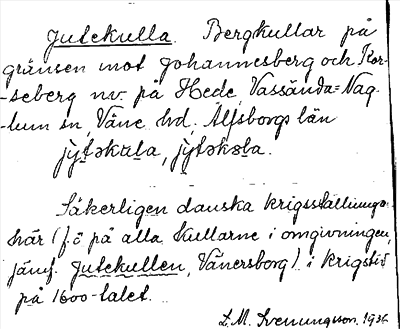 Jutekulla. Bergkullar på
gränsen mot Johannesberg och Kor-
-seberg nv. på Hede, Vassända=Nag-
-lum sn, Väne hd, Älfsborgs län
jùtəkula, jỳtəkɷla.
Säkerligen danska krigsställningar
här (f.ö på alla kullarne i omgivningen,
jämf. Jutekullen, Vänersborg) i krigstid
på 1600-talet.
L.M. Svenungsson. 1936